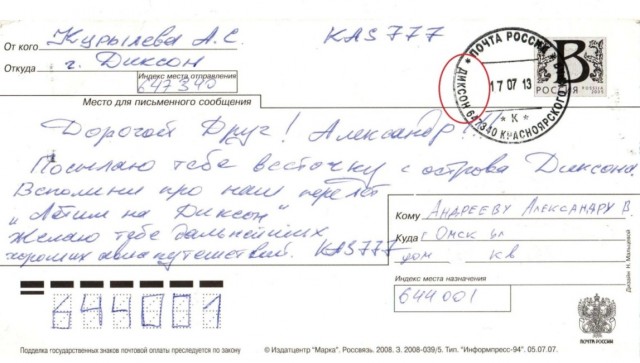 От кого Курылева А.С. KAS777
Откуда г. Диксон
Индекс места отправления
647340
ПОЧТА РОССИИ
ДИКСОН 647340 КРАСНОЯРСКОГО
17 07 13
* К *
В
РОССИЯ
Место для письменного сообщения
Дорогой Друг! Александр!!!
Посылаю тебе весточку с острова Диксона.
Вспомини про наш перелёт
"Летим на Диксон"
Желаю тебе дальнейших
хороших авиапутешествий. KAS777
Кому Андрееву Александру В.
Куда г Омск ул
дом кв
Индекс места назначения
644001
644001
Дизайн Н. Мальцевой
ПОЧТА РОССИИ
Подделка государственных знаков почтовой оплаты преследуется по закону
© Издатцентр "Марка". Россвязь. 2008. З. 2008-039/5. Тип. "Информпресс-94". 05.07.07.